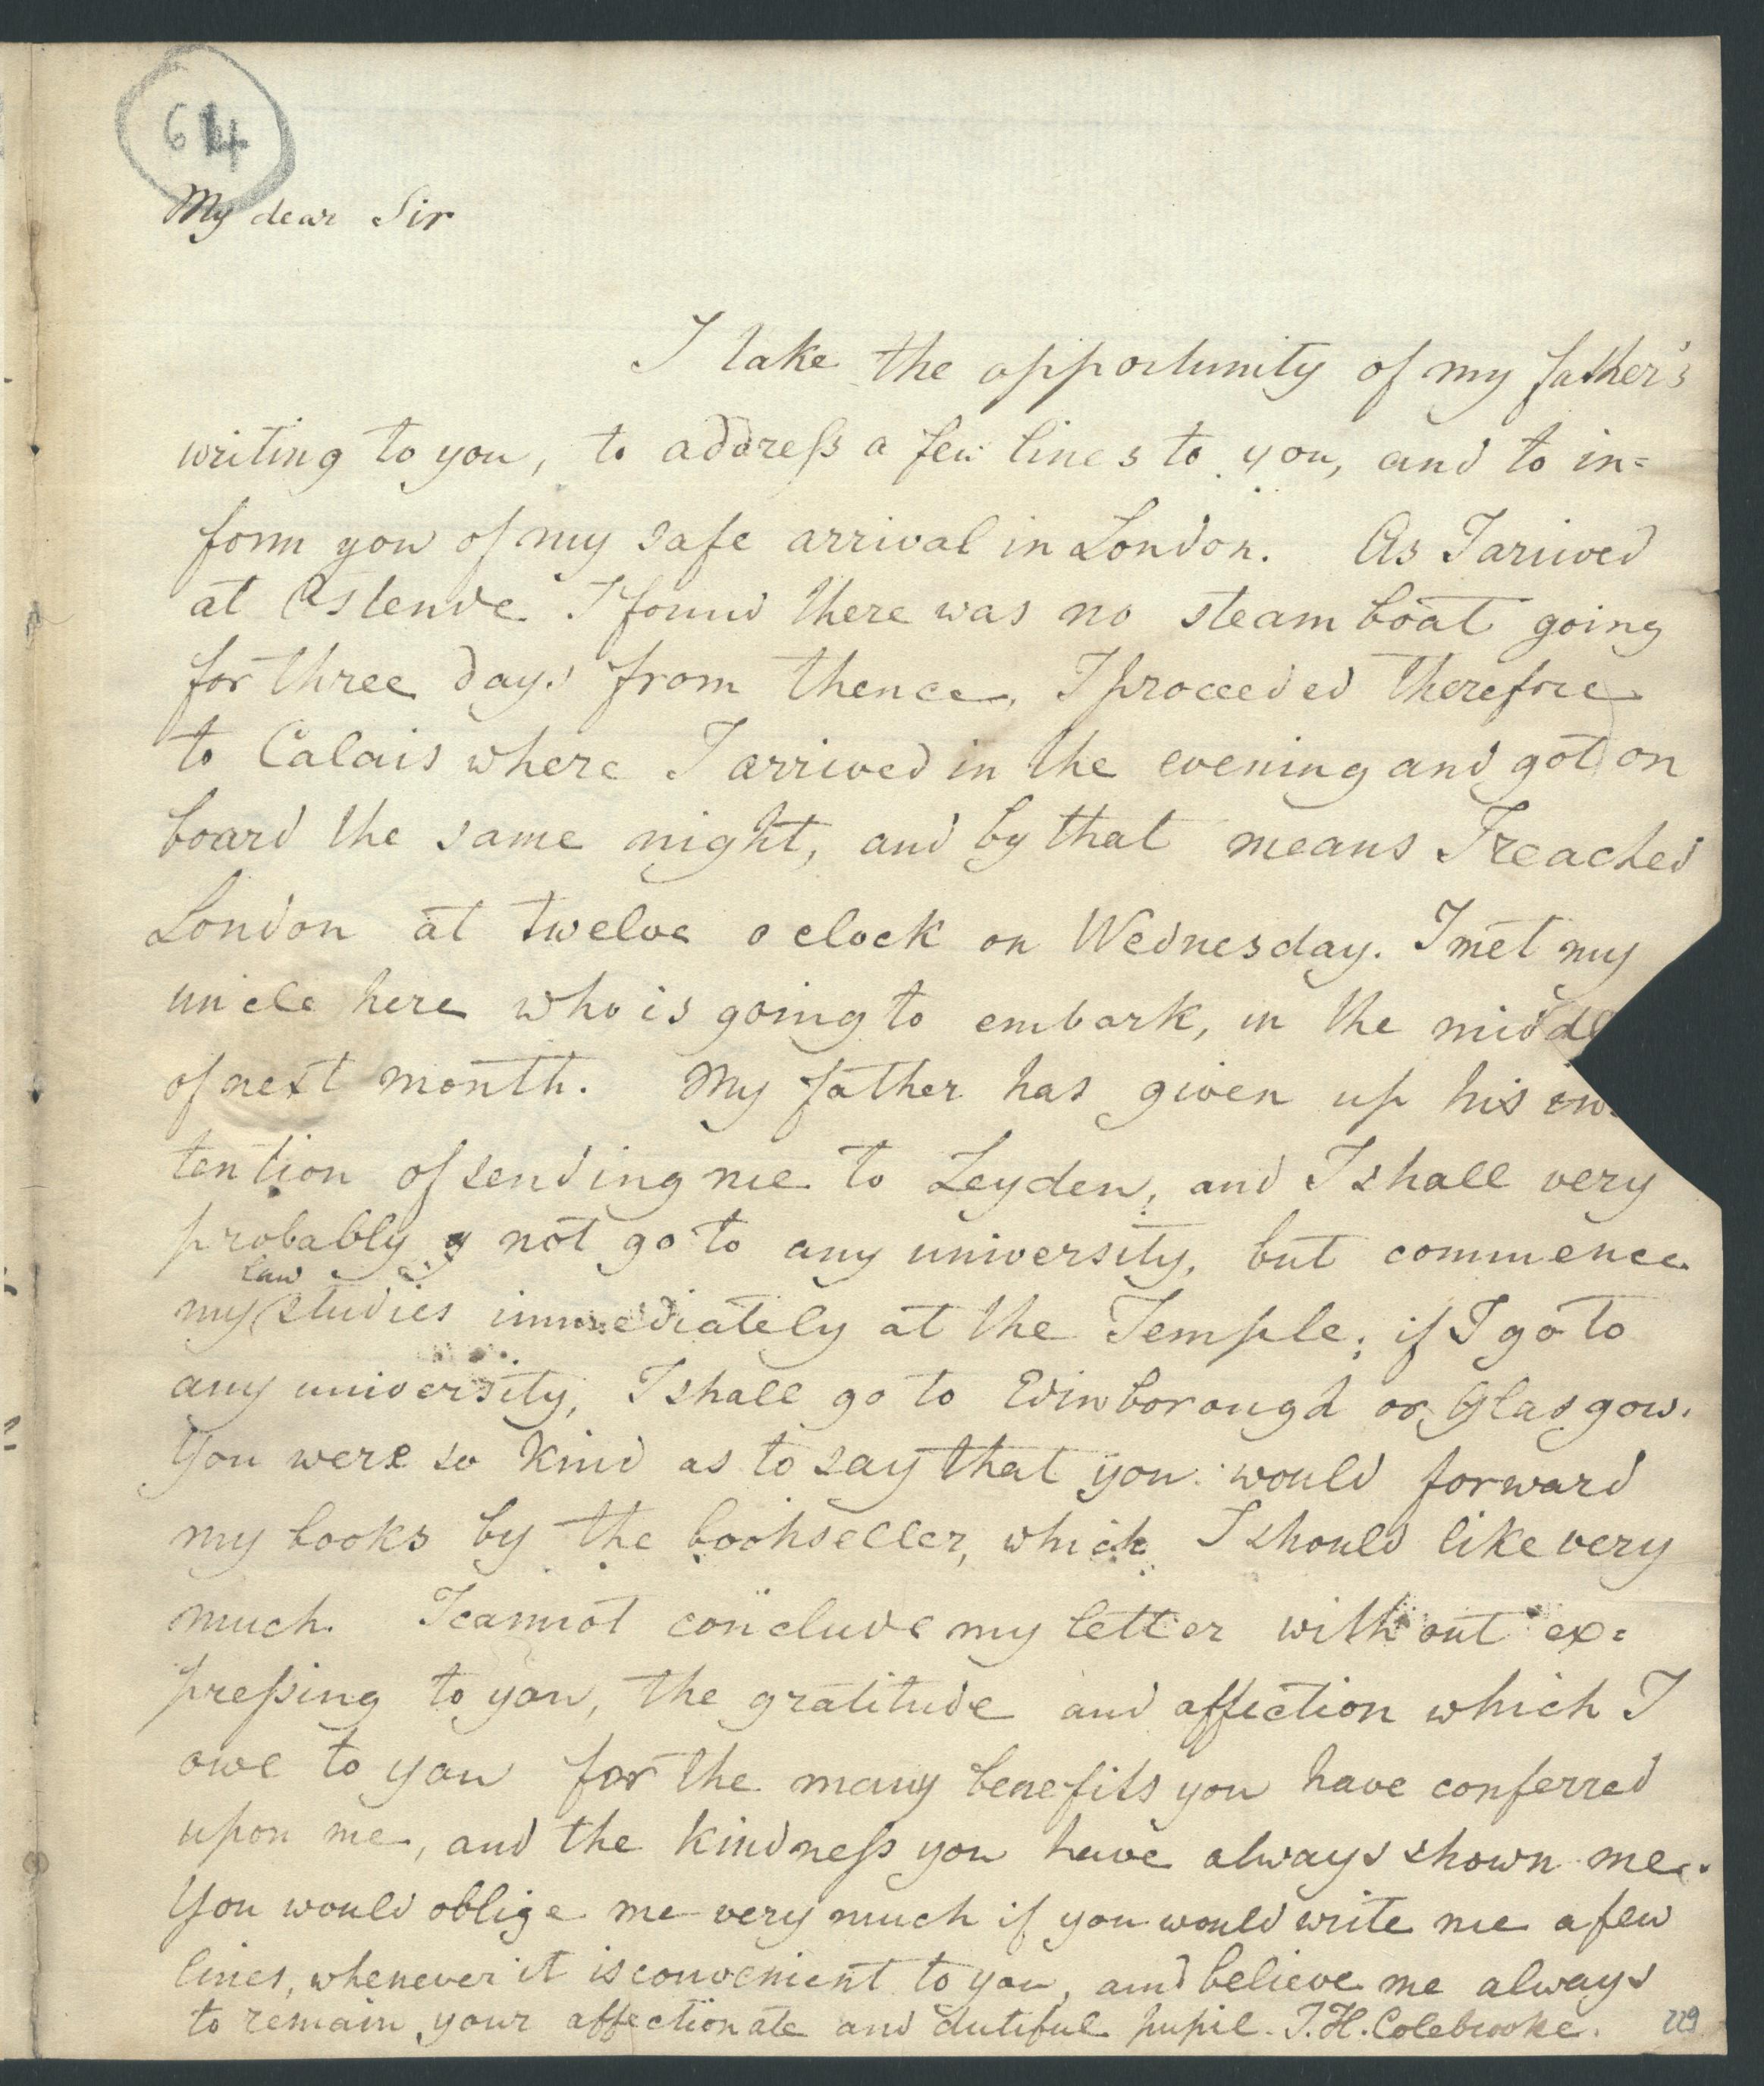 64
My dear Sir
I take the opportunity of my father's
writing to you, to address a few lines to you, and to in=
form you of my safe arrival in London. As I arived
at Ostende I found there was no steam boat going
for three days from thence, I proceeded therefore
to Calais where I arrived in the evening and got on
board the same night, and by that means I reached
London at twelve o clock on Wednesday. I met my
uncle here who is going to embark, in the middl
of next month. My father has given up his in
tention of sending me to Leyden, and I shall very
probably not go to any university, but commence
law
my studies immediately at the Temple; if I go to
any university, I shall go to Edinborough or Glasgow.
You were so kind as to say that you would forward
my books by the bookseller, which I should like very
much. I cannot conclude my letter without ex=
pressing to you, the gratitude and affection which I
owe to you for the many benefits you have conferred
upon me, and the kindness you have always shown me.
You would oblige me very much if you would write me a few
lines, whenever it is convenient to you, and believe me always
to remain your affectionate and dutiful pupil. T. H. Colebrooke.
229